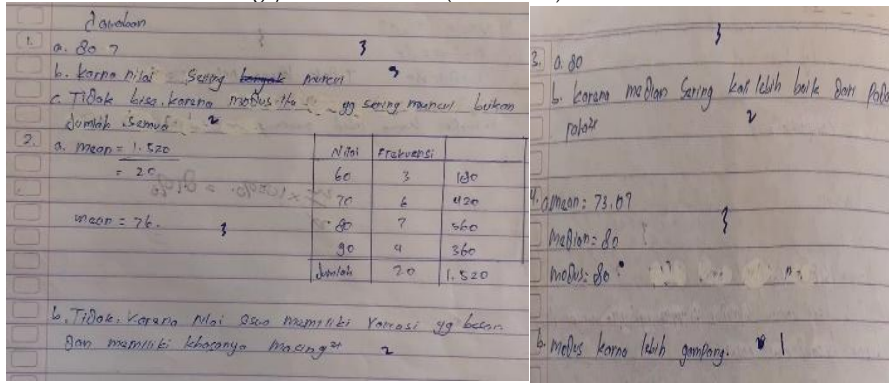 Jawaban
1. a. 80 7 3
b. karna nilai sering banyak muncul 3
c. Tidak bisa, karena modus itu yg sering muncul bukan
Jumlah semua 2
2. a. mean = 1.520
= 20
mean = 76. 3
Nilai Frekuensi
60 3 180
70 6 420
80 7 560
90 4 360
Jumlah 20 1.520
b. Tidak, karena nilai memiliki Variasi yg besar
dan memiliki masing²⁺ 2
3
3. a. 80
b. karena median sering kali lebih baik dari pada
2
4. a. mean: 73,07
median = 80 3
modus: 80
b. modus karna lebih gampang. 1